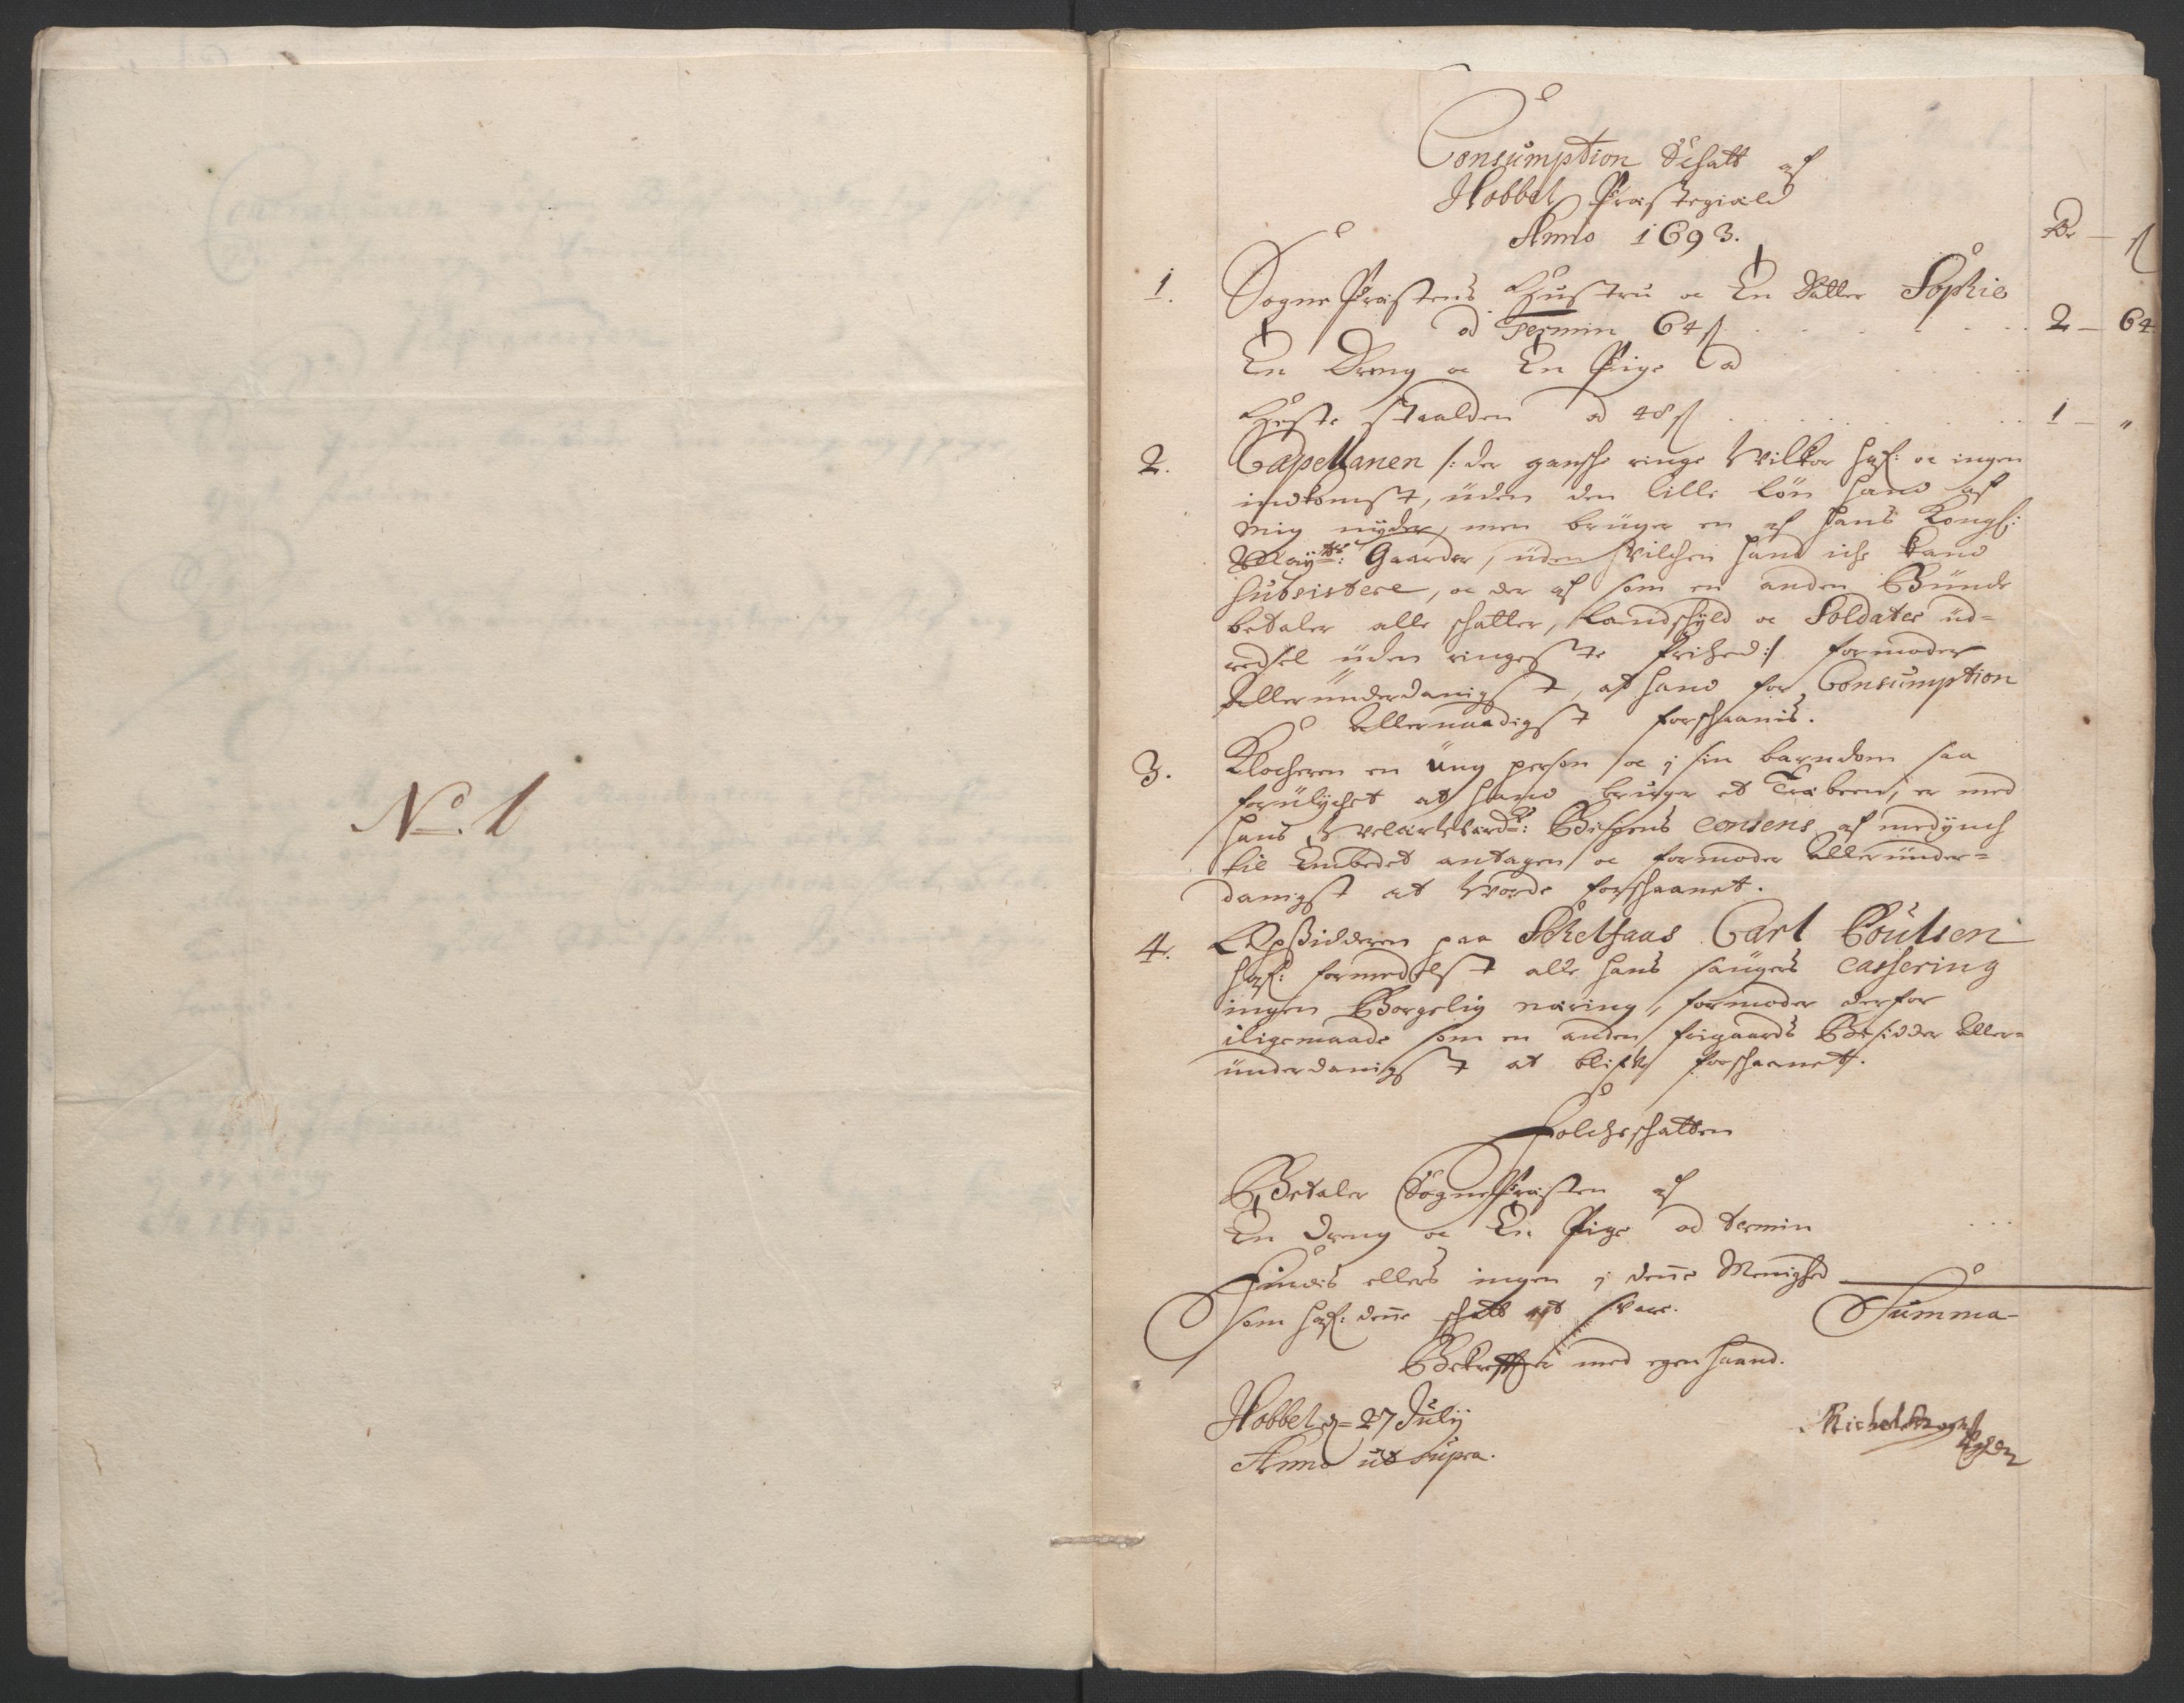 No. 1
Consumption Schatt af
Hobbel Præstegield
Anno 1693.
Rdr – ß
1. Sogne Præstens Hustru oc En Datter Sophie
ad Termin 64 ß . . . . . . 2 – 64
En Dreng oc En Pige ad . . .
Heste staalden ad 48 ß . . . . . . 1 – "
2. Capellanen /: der gansche ringe Vilkor haf: oc ingen
indkomst, uden den lille løn hand af
mig nyder, men bruger en af hans Kongl:
Mayts: Gaarder, uden hvilchen hand iche kand
subsistere, oc der af som en anden Bunde
betaler alle schatter, Landschyld oc Soldater ud=
redsel uden ringeste frihed :/ formoder
Allerunderdanigst, at hand for Consumption
Allernaadigst forschaanis.
3. Klocheren en ung person oc i sin barndom saa
forulychet at hand bruger et Træbeen, er med
hans Bispens consens af
til Embedet antagen oc formoder Allerunder=
danigst at vorde forschaanet.
4. Opsidderen paa Carl Poulsen
haf: formedelst alle hans saugers cassering
ingen Borgelig næring, formoder derfor
iligemaade som en anden frigaards Besidder Aller=
underdanigst at blifve forschaanet.
Folcheschatten
Betaler SognePræsten af
En Dreng oc En Pige ad termin . . .
Findis ellers ingen i denne Menighed
som haf: denne schatt at svare. Summa –
Bekreftet med egen haand.
Hobbel d= 27 Julij
Anno ut supra.